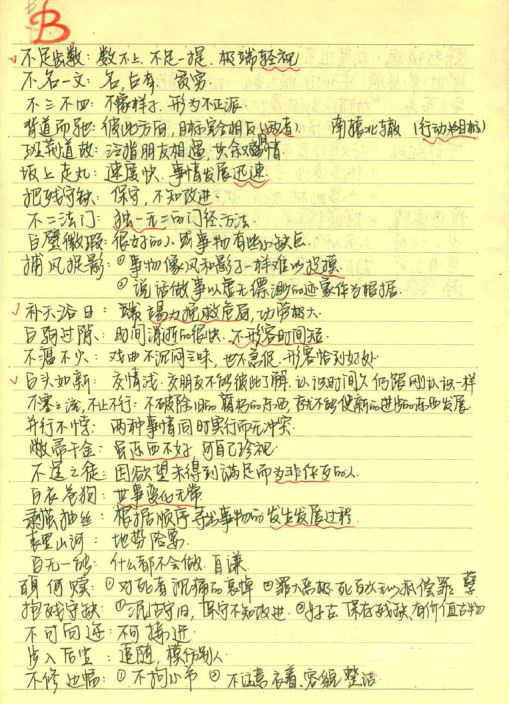 B
不足齿数：数不上，不足一提，极端轻视
不名一文：名，占有 贫穷
不三不四：不像样子，形为不正派
背道而驰：彼此方向，目标完全相反（两者） 南辕北辙（行动与目标）
班荆道故：泛指朋友相遇，共叙 情
坂上走丸：速度快，事情发展迅速
抱残守缺：保守，不知改进
不二法门：独一无二的门径、方法
白璧微瑕：很好的人或事物有些小缺点
捕风捉影：①事物像风和影子一样难以捉摸
②说话做事以虚无缥渺的迹象作为根据
补天浴日： 竭力挽救危局，功劳极大
白驹过隙：时间消逝的很快，不形容时间短
不温不火：戏曲不沉闷乏味，也不急促，形容恰到好处
白头如新：交情浅，交朋友不能彼此了解，认识时间久仍跟刚认识一样
不塞不流，不止不行：不破除旧的 的东西，就不能使新的进步的东西发展
并行不悖：两种事情同时实行而无冲突
敝帚千金：虽东西不好，可自己珍视
不逞之徒：因欲望未得到满足而为非作歹的人
白衣苍狗：世事变化无常
剥茧抽丝：根据顺序寻出事物的发生发展过程
表里山河：地势险要
百无一能：什么都不会做，自谦
百身何赎：①对死者沉痛的哀悼 ②罪大恶极，死百次无以抵偿罪孽
抱残守缺：①泥古守旧，保守不知改进 ②好古，保存残缺有价值古物
不可向迩：不可接近
步人后尘：追随，模仿别人
不修边幅：①不拘小节 ②不注意衣着、容貌整洁